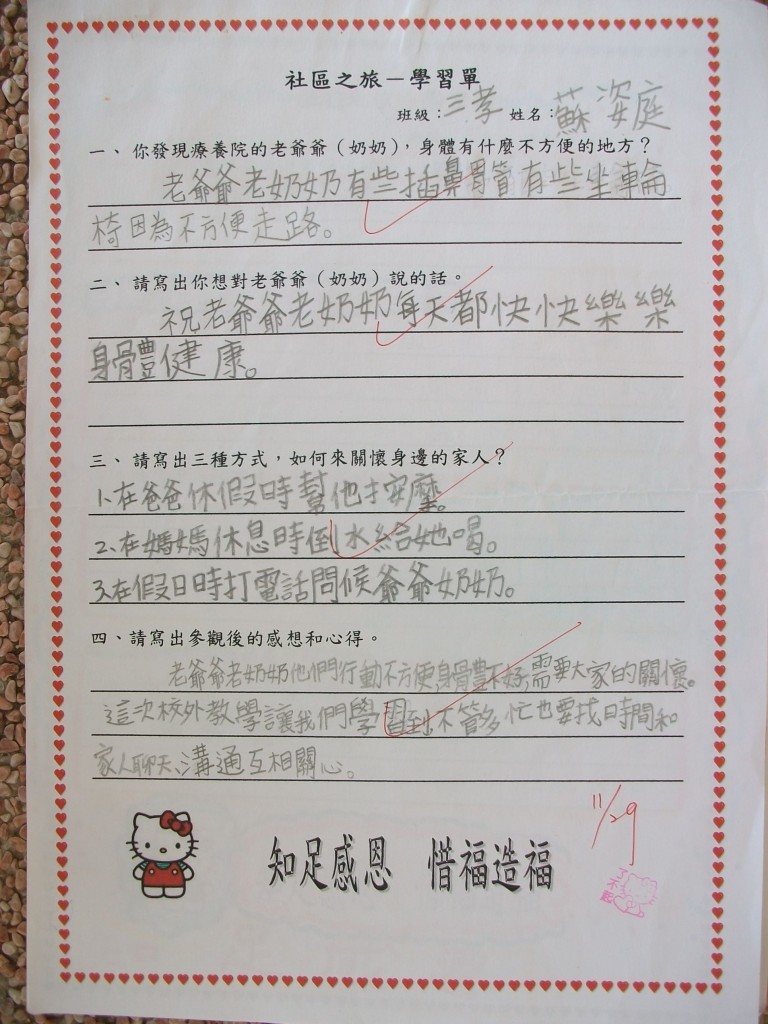 社區之旅－學習單
班級：三孝 姓名：蘇姿庭
一、你發現療養院的老爺爺（奶奶），身體有什麼不方便的地方？
老爺爺老奶奶有些插鼻胃管有些坐輪
椅因為不方便走路。
二、請寫出你想對老爺爺（奶奶）說的話。
祝老爺爺老奶奶每天都快快樂樂
身體健康。
三、請寫出三種方式，如何來關懷身邊的家人？
1.在爸爸休假時幫他按摩。
2.在媽媽休息時倒水給她喝。
3.在假日時打電話問候爺爺奶奶。
四、請寫出參觀後的感想和心得。
老爺爺老奶奶他們行動不方便,身體不好,需要大家的關懷。
這次校外教學讓我們學習到,不管多忙也要找時間和
家人聊天、溝通互相關心。
11/29
知足感恩 惜福造福
了不起